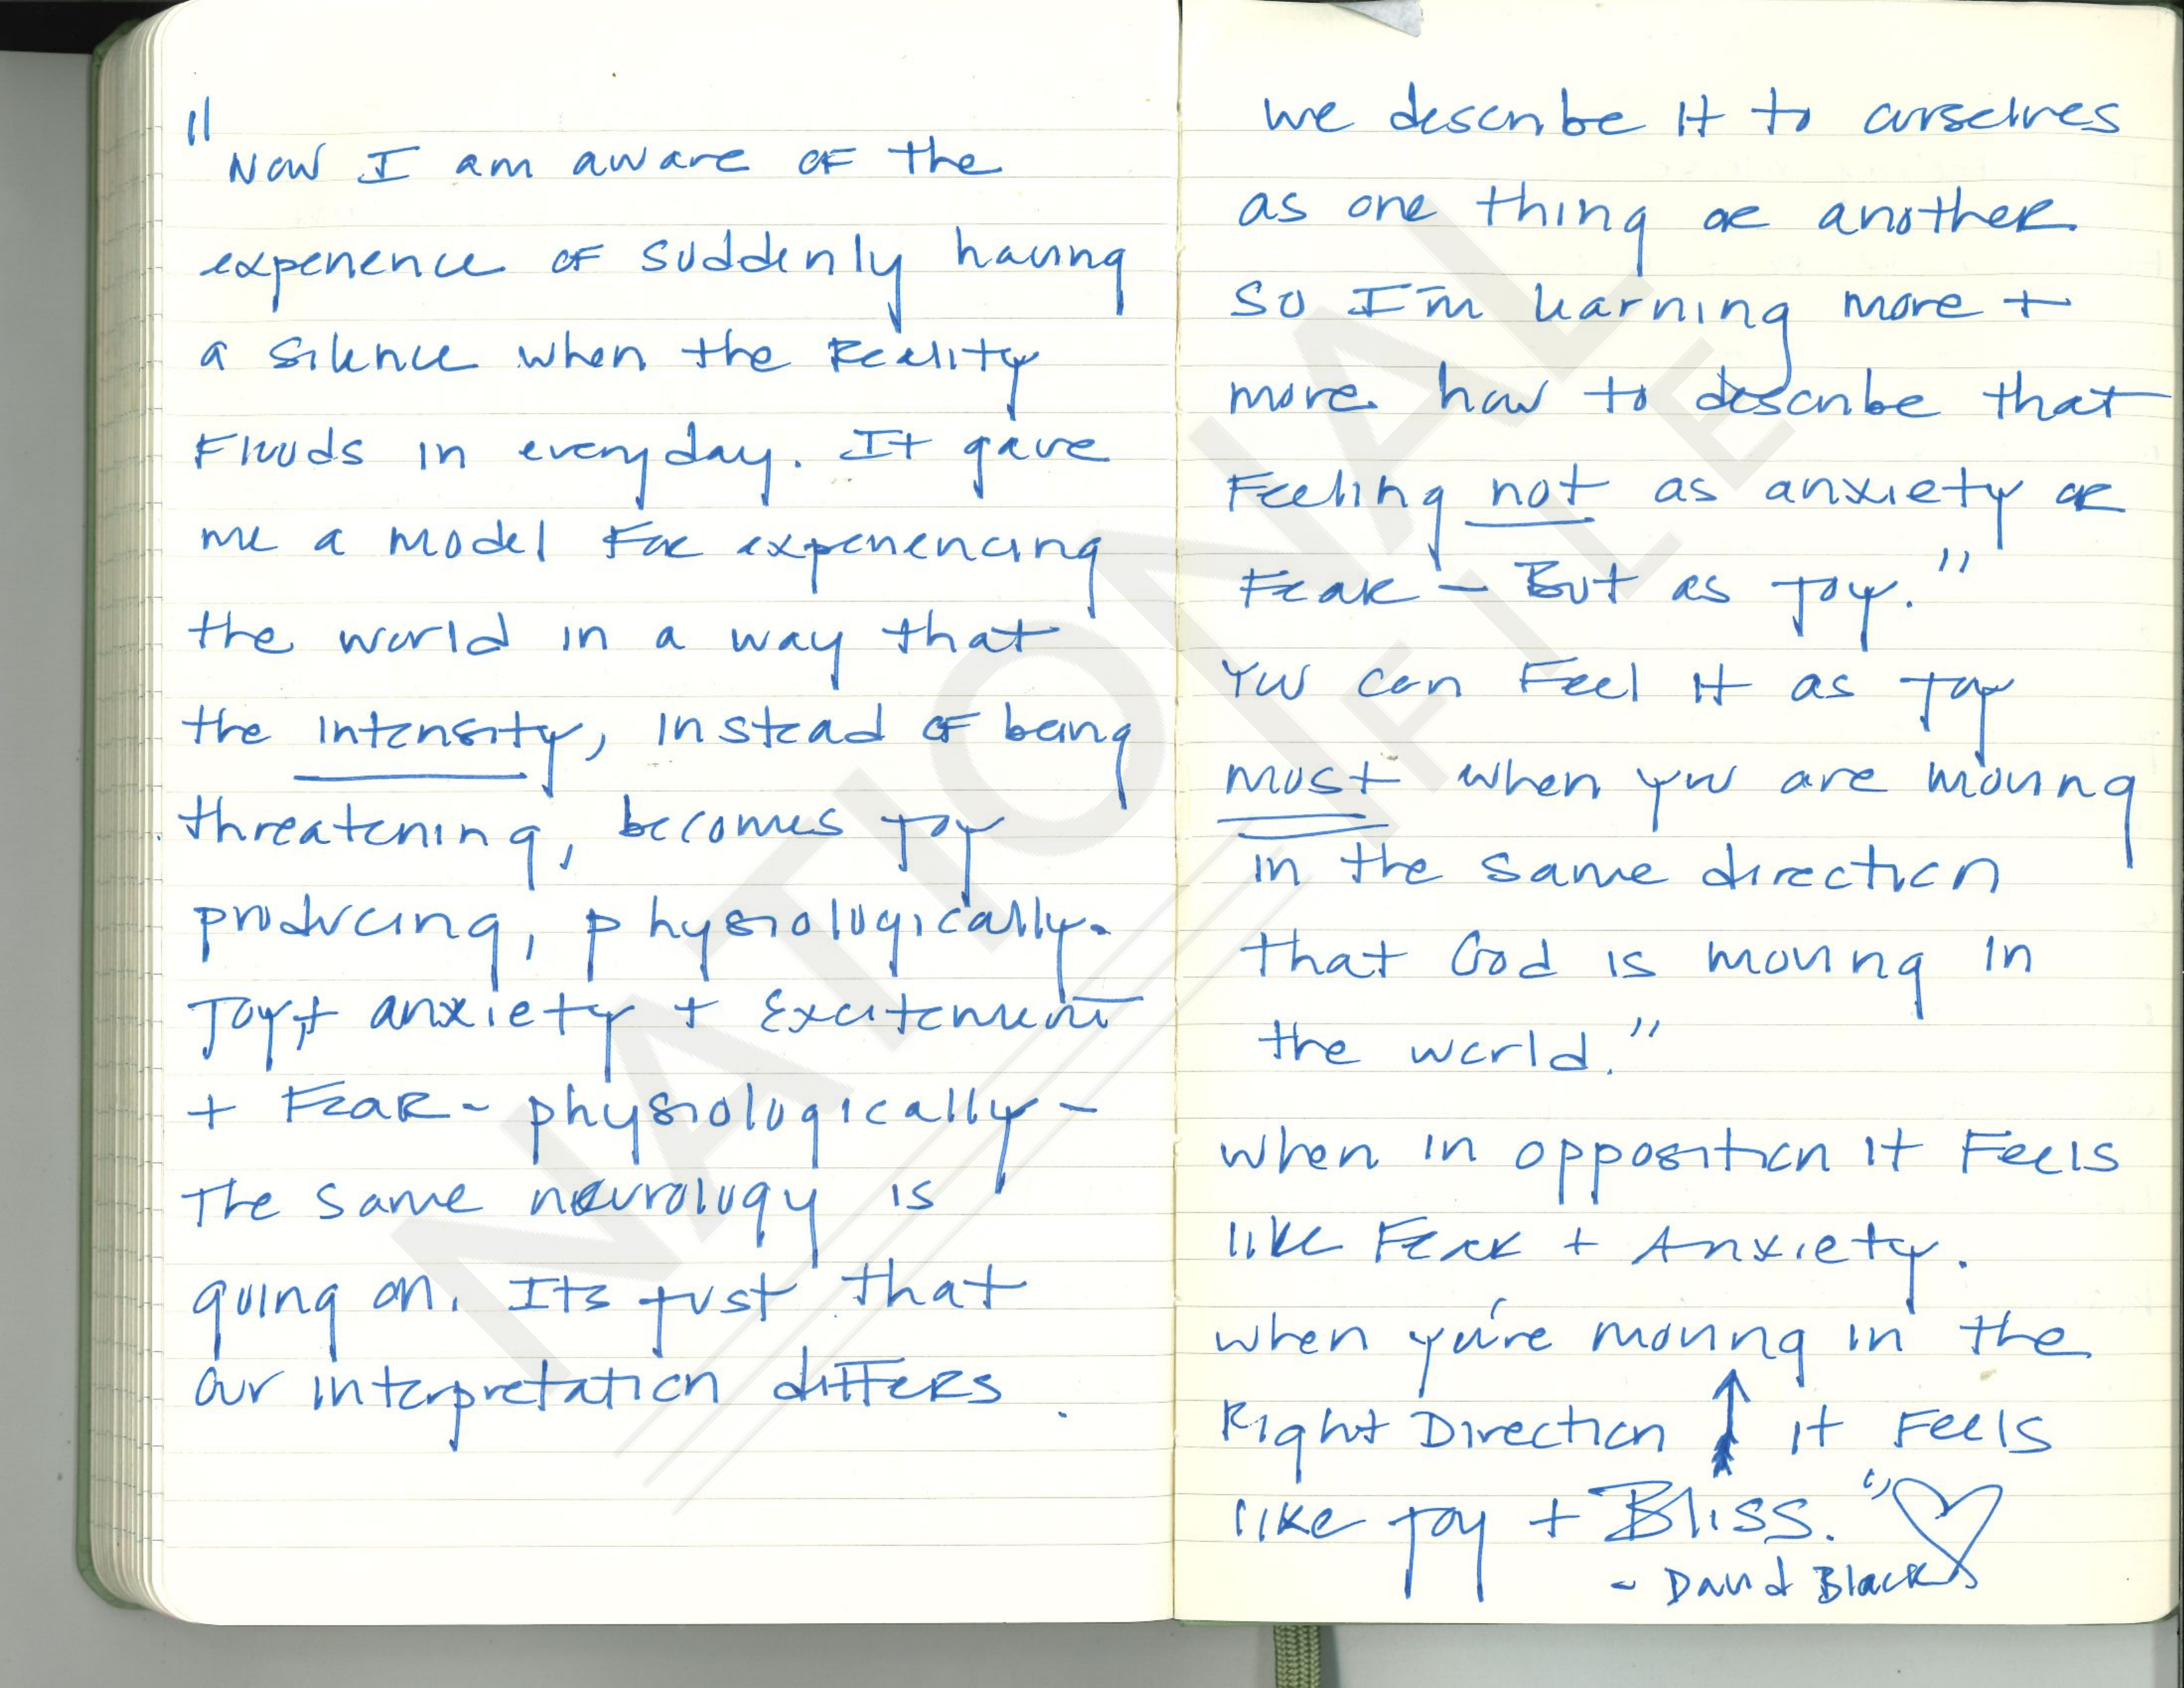 "Now I am aware of the
experience of suddenly having
a silence when the Reality
Floods in everyday. It gave
me a model For experiencing
the world in a way that
the intensity, instead of being
threatening, becomes joy
producing, physiologically-
Joy + anxiety + Excitement
+ Fear - physiologically -
The same neurology is
going on. Its just that
our interpretation differs.
we describe it to ourselves
as one thing or another
So I'm learning more +
more how to describe that
Feeling not as anxiety or
Fear - But as Joy."
You can Feel it as Joy
most when you are moving
in the same direction
that God is moving in
the world."
when in opposition it Feels
like Fear + Anxiety.
when you're moving in the
Right Direction ↑ it Feels
like joy + Bliss." ♡
- David Black
NATIONAL
FILE